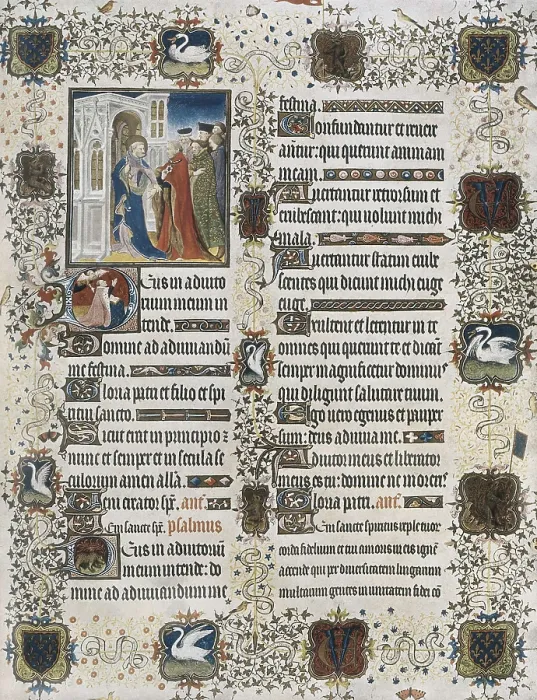 Deus in adiuto
rium meum in
tende.
Domine ad adiuuandū
me festina.
Gloria patri et filio et spi
ritui sancto.
Sicut erat in principio:
nunc et semper et in secula se
culorum amen allā.
Veni creator spr̄. ant.
Veni sancte spr̄. psalmus
Deus in adiutoriū
meum intende: do
mine ad adiuuandum me
festina.
Confundantur et reuere
antur: qui querunt animam
meam.
Auertantur retrorsum et
erubescant: qui uolunt michi
mala.
Auertantur statim erube
scentes qui dicunt michi euge
euge.
Exultent et letentur in te
omnes qui querunt te et dicant
semper magnificetur dominus
qui diligunt salutare tuum.
Ego uero egenus et pauper
sum: deus adiuua me.
Adiutor meus et liberator
meus es tu: domine ne moreris
Gloria patri. ant.
Veni sancte spiritus reple tuor
corda fidelium et tui amoris in eis ignē
accende qui per diuersitatem linguarum
multarum gentes in unitatem fidei cō